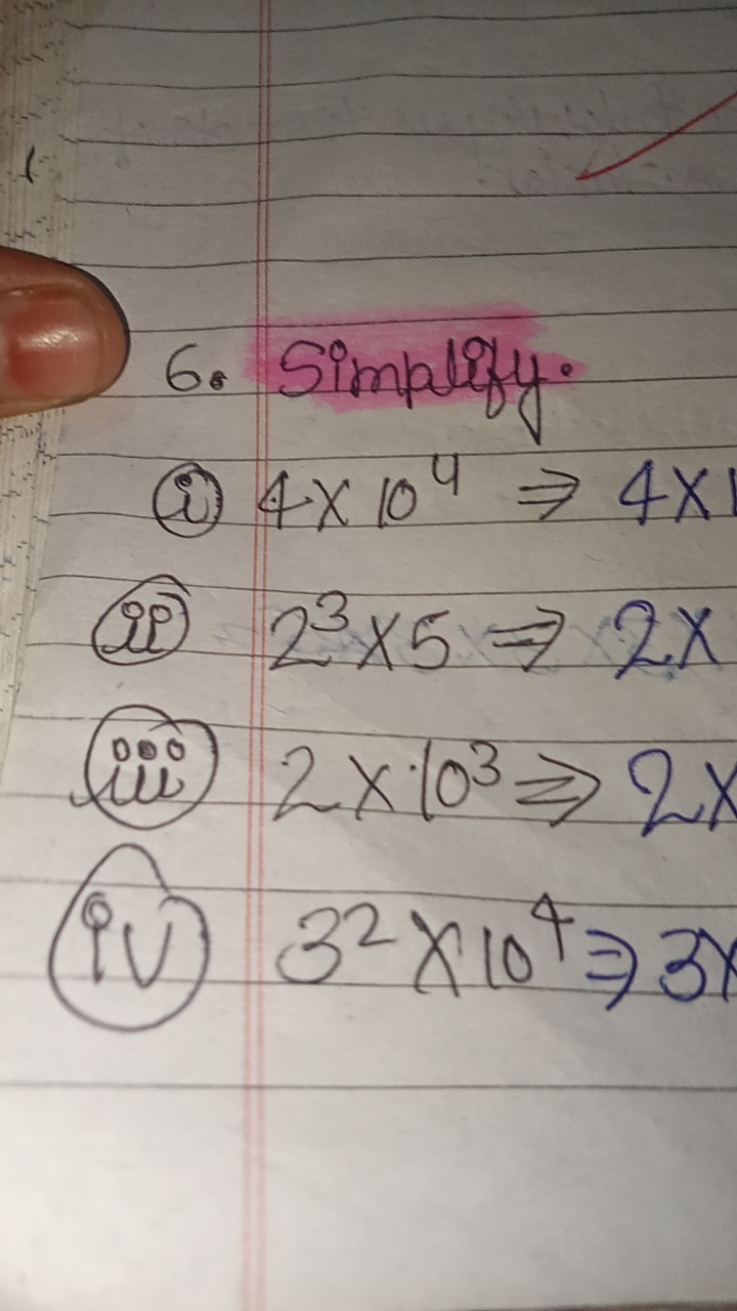 6. Simplify.
(i) 4 × 10⁴ ⇒ 4 × 1
(ii) 2³ × 5 ⇒ 2 ×
(iii) 2 × 10³ ⇒ 2 ×
(iv) 3² × 10⁴ ⇒ 3 ×